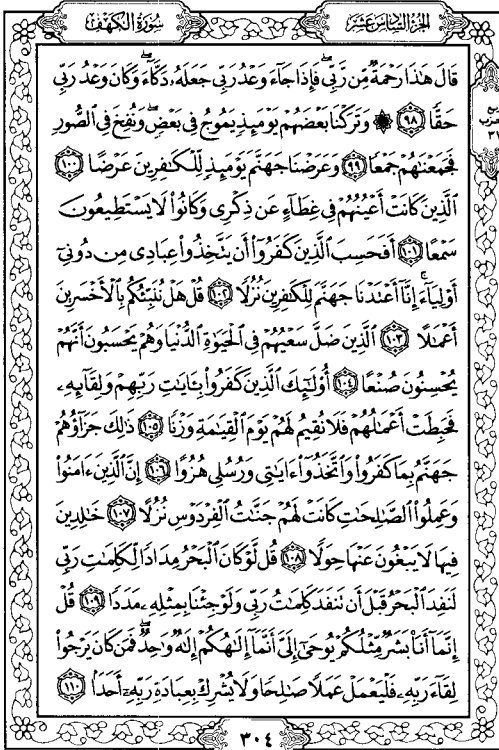 الجزء السادس عشر
سورة الكهف
قَالَ هَٰذَا رَحْمَةٌ مِّن رَّبِّي ۖ فَإِذَا جَاءَ وَعْدُ رَبِّي جَعَلَهُۥ دَكَّاءَ ۖ وَكَانَ وَعْدُ رَبِّي
حَقًّا ٩٨ ۞ وَتَرَكْنَا بَعْضَهُمْ يَوْمَئِذٍ يَمُوجُ فِي بَعْضٍ ۖ وَنُفِخَ فِي ٱلصُّورِ
فَجَمَعْنَٰهُمْ جَمْعًا ٩٩ وَعَرَضْنَا جَهَنَّمَ يَوْمَئِذٍ لِّلْكَٰفِرِينَ عَرْضًا ١٠٠
ٱلَّذِينَ كَانَتْ أَعْيُنُهُمْ فِي غِطَاءٍ عَن ذِكْرِي وَكَانُوا۟ لَا يَسْتَطِيعُونَ
سَمْعًا ١٠١ أَفَحَسِبَ ٱلَّذِينَ كَفَرُوٓا۟ أَن يَتَّخِذُوا۟ عِبَادِي مِن دُونِيٓ
أَوْلِيَاءَ ۚ إِنَّآ أَعْتَدْنَا جَهَنَّمَ لِلْكَٰفِرِينَ نُزُلًا ١٠٢ قُلْ هَلْ نُنَبِّئُكُم بِٱلْأَخْسَرِينَ
أَعْمَٰلًا ١٠٣ ٱلَّذِينَ ضَلَّ سَعْيُهُمْ فِي ٱلْحَيَوٰةِ ٱلدُّنْيَا وَهُمْ يَحْسَبُونَ أَنَّهُمْ
يُحْسِنُونَ صُنْعًا ١٠٤ أُو۟لَٰٓئِكَ ٱلَّذِينَ كَفَرُوا۟ بِـَٔايَٰتِ رَبِّهِمْ وَلِقَآئِهِۦ
فَحَبِطَتْ أَعْمَٰلُهُمْ فَلَا نُقِيمُ لَهُمْ يَوْمَ ٱلْقِيَٰمَةِ وَزْنًا ١٠٥ ذَٰلِكَ جَزَآؤُهُمْ
جَهَنَّمُ بِمَا كَفَرُوا۟ وَٱتَّخَذُوٓا۟ ءَايَٰتِي وَرُسُلِي هُزُوًا ١٠٦ إِنَّ ٱلَّذِينَ ءَامَنُوا۟
وَعَمِلُوا۟ ٱلصَّٰلِحَٰتِ كَانَتْ لَهُمْ جَنَّٰتُ ٱلْفِرْدَوْسِ نُزُلًا ١٠٧ خَٰلِدِينَ
فِيهَا لَا يَبْغُونَ عَنْهَا حِوَلًا ١٠٨ قُل لَّوْ كَانَ ٱلْبَحْرُ مِدَادًا لِّكَلِمَٰتِ رَبِّي
لَنَفِدَ ٱلْبَحْرُ قَبْلَ أَن تَنفَدَ كَلِمَٰتُ رَبِّي وَلَوْ جِئْنَا بِمِثْلِهِۦ مَدَدًا ١٠٩ قُلْ
إِنَّمَآ أَنَا۠ بَشَرٌ مِّثْلُكُمْ يُوحَىٰٓ إِلَيَّ أَنَّمَآ إِلَٰهُكُمْ إِلَٰهٌ وَٰحِدٌ ۖ فَمَن كَانَ يَرْجُوا۟
لِقَآءَ رَبِّهِۦ فَلْيَعْمَلْ عَمَلًا صَٰلِحًا وَلَا يُشْرِكْ بِعِبَادَةِ رَبِّهِۦٓ أَحَدًۢا ١١٠
٣٠٤